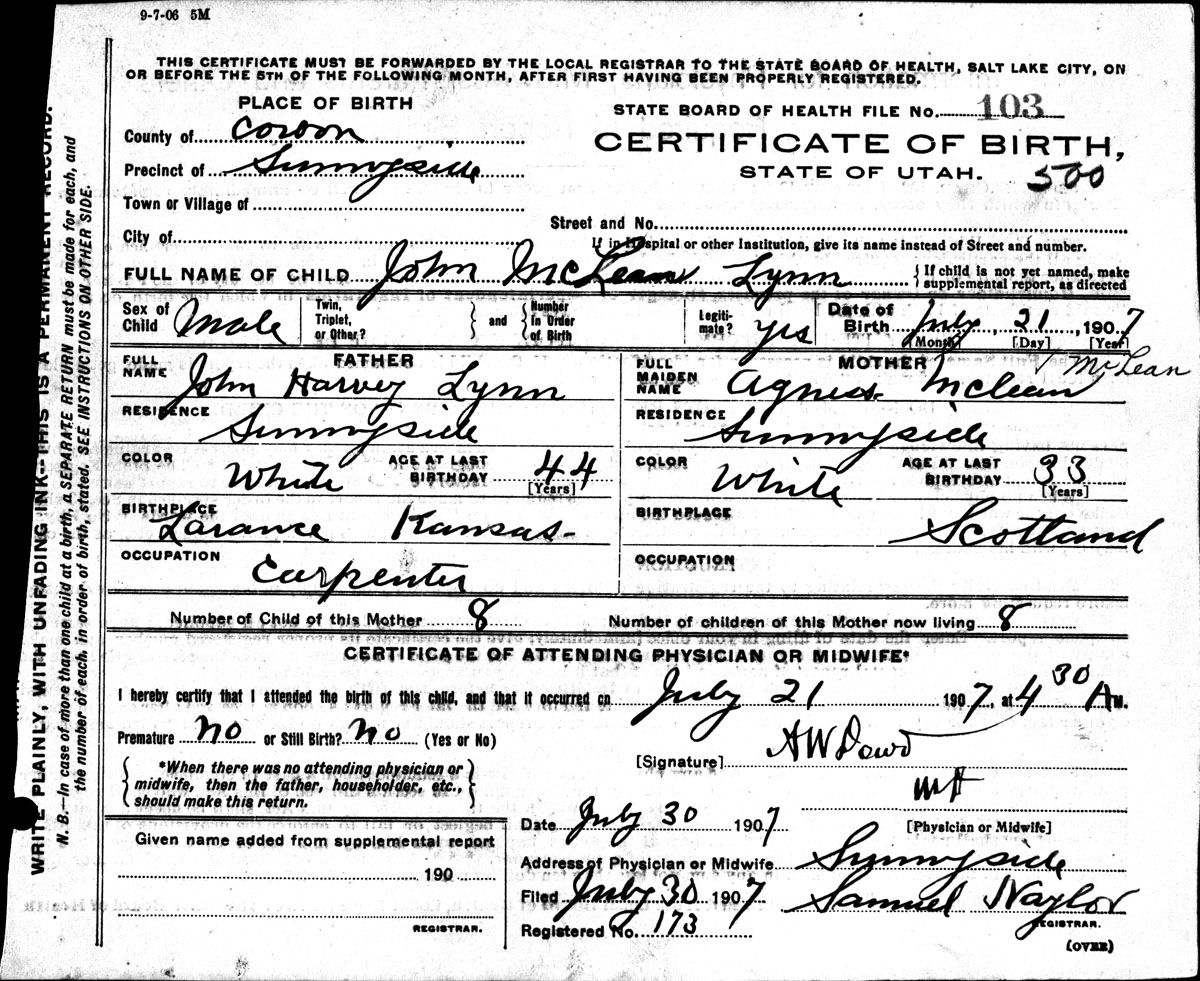 9-7-06 5M
THIS CERTIFICATE MUST BE FORWARDED BY THE LOCAL REGISTRAR TO THE STATE BOARD OF HEALTH, SALT LAKE CITY, ON
OR BEFORE THE 5TH OF THE FOLLOWING MONTH, AFTER FIRST HAVING BEEN PROPERLY REGISTERED.
PLACE OF BIRTH
STATE BOARD OF HEALTH FILE No. 103
County of Corbon
CERTIFICATE OF BIRTH,
Precinct of Sunnyside
STATE OF UTAH. 500
Town or Village of
Street and No.
City of
If in Hospital or other Institution, give its name instead of Street and number.
FULL NAME OF CHILD John McLean Lynn { If child is not yet named, make supplemental report, as directed
Sex of Child Male Twin, Triplet, or Other? } and { Number In Order of Birth Legiti-mate? yes Date of Birth July, 21, 1907
[Month] [Day] [Year]
FATHER
FULL NAME John Harvey Lynn
RESIDENCE Sunnyside
COLOR White AGE AT LAST BIRTHDAY 44 [Years]
BIRTHPLACE Larance Kansas-
OCCUPATION Carpenter
MOTHER McLean
FULL MAIDEN NAME Agness Mclean
RESIDENCE Sunnyside
COLOR White AGE AT LAST BIRTHDAY 33 [Years]
BIRTHPLACE Scotland
OCCUPATION
Number of Child of this Mother 8 Number of children of this Mother now living 8
CERTIFICATE OF ATTENDING PHYSICIAN OR MIDWIFE*
I hereby certify that I attended the birth of this child, and that it occurred on July 21 1907, at 4 30 A M.
Premature No or Still Birth? No (Yes or No)
[Signature] A W Dowd
{ *When there was no attending physician or
midwife, then the father, householder, etc.,
should make this return. }
MD
[Physician or Midwife]
Date July 30 1907
Given name added from supplemental report
190
REGISTRAR.
Address of Physician or Midwife Sunnyside
Filed July 30 1907 Samuel Naylor
REGISTRAR.
Registered No. 173
(OVER)
WRITE PLAINLY, WITH UNFADING INK--THIS IS A PERMANENT RECORD.
N. B.—In case of more than one child at a birth, a SEPARATE RETURN must be made for each, and
the number of each, in order of birth, stated. SEE INSTRUCTIONS ON OTHER SIDE.